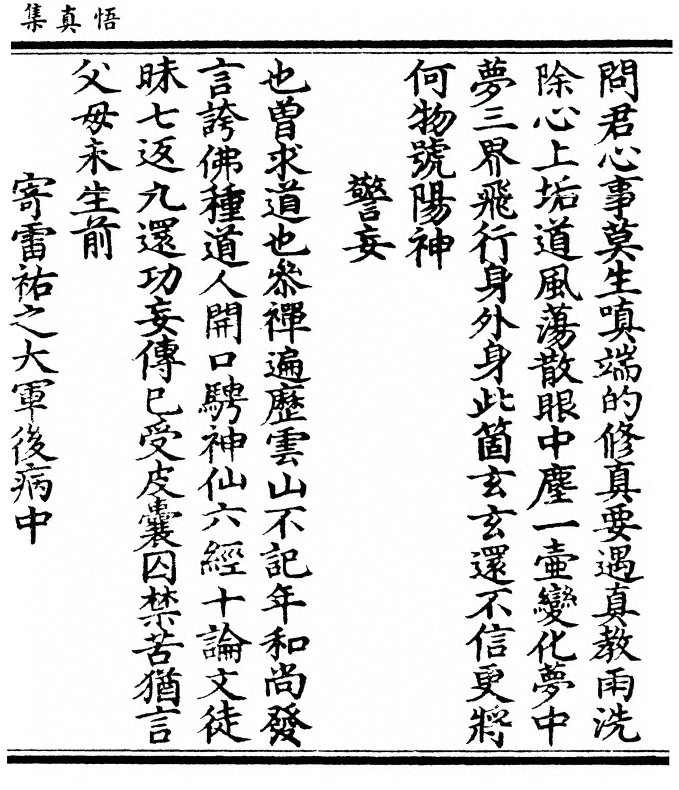 悟真集
問君心事莫生嗔端的修真要遇真教雨洗
除心上垢道風蕩散眼中塵一壺變化夢中
夢三界飛行身外身此箇玄玄還不信更將
何物號陽神
警妄
也曽求道也叅禪遍歷雲山不記年和尚發
言誇佛種道人開口騁神仙六經十論文徒
昧七返九還功妄傳已受皮囊囚禁苦猶言
父母未生前
寄雷祐之大軍後病中